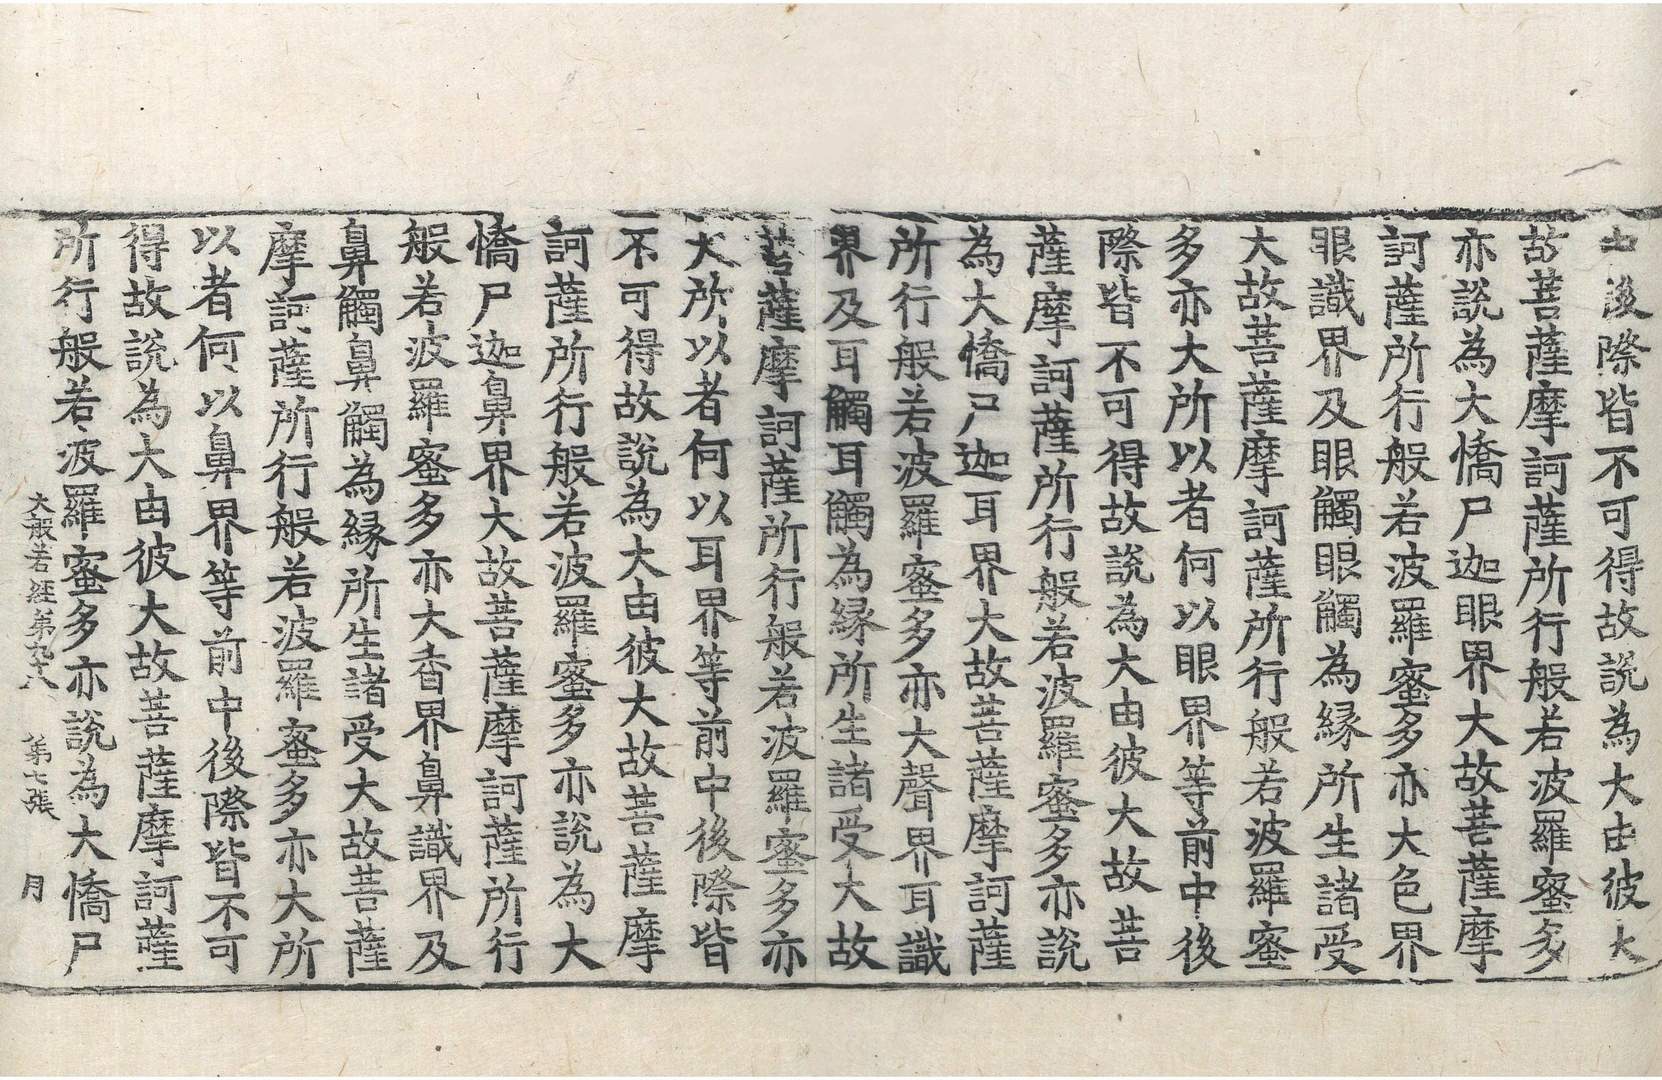 中後際皆不可得故説為大由彼大
故菩薩摩訶薩所行般若波羅蜜多
亦説為大憍尸迦眼界大故菩薩摩
訶薩所行般若波羅蜜多亦大色界
眼識界及眼觸眼觸為縁所生諸受
大故菩薩摩訶薩所行般若波羅蜜
多亦大所以者何以眼界等前中後
際皆不可得故説為大由彼大故菩
薩摩訶薩所行般若波羅蜜多亦説
為大憍尸迦耳界大故菩薩摩訶薩
所行般若波羅蜜多亦大聲界耳識
界及耳觸耳觸為縁所生諸受大故
菩薩摩訶薩所行般若波羅蜜多亦
大所以者何以耳界等前中後際皆
不可得故説為大由彼大故菩薩摩
訶薩所行般若波羅蜜多亦説為大
憍尸迦鼻界大故菩薩摩訶薩所行
般若波羅蜜多亦大香界鼻識界及
鼻觸鼻觸為縁所生諸受大故菩薩
摩訶薩所行般若波羅蜜多亦大所
以者何以鼻界等前中後際皆不可
得故説為大由彼大故菩薩摩訶薩
所行般若波羅蜜多亦説為大憍尸
大般若經第九十八 第七張 月